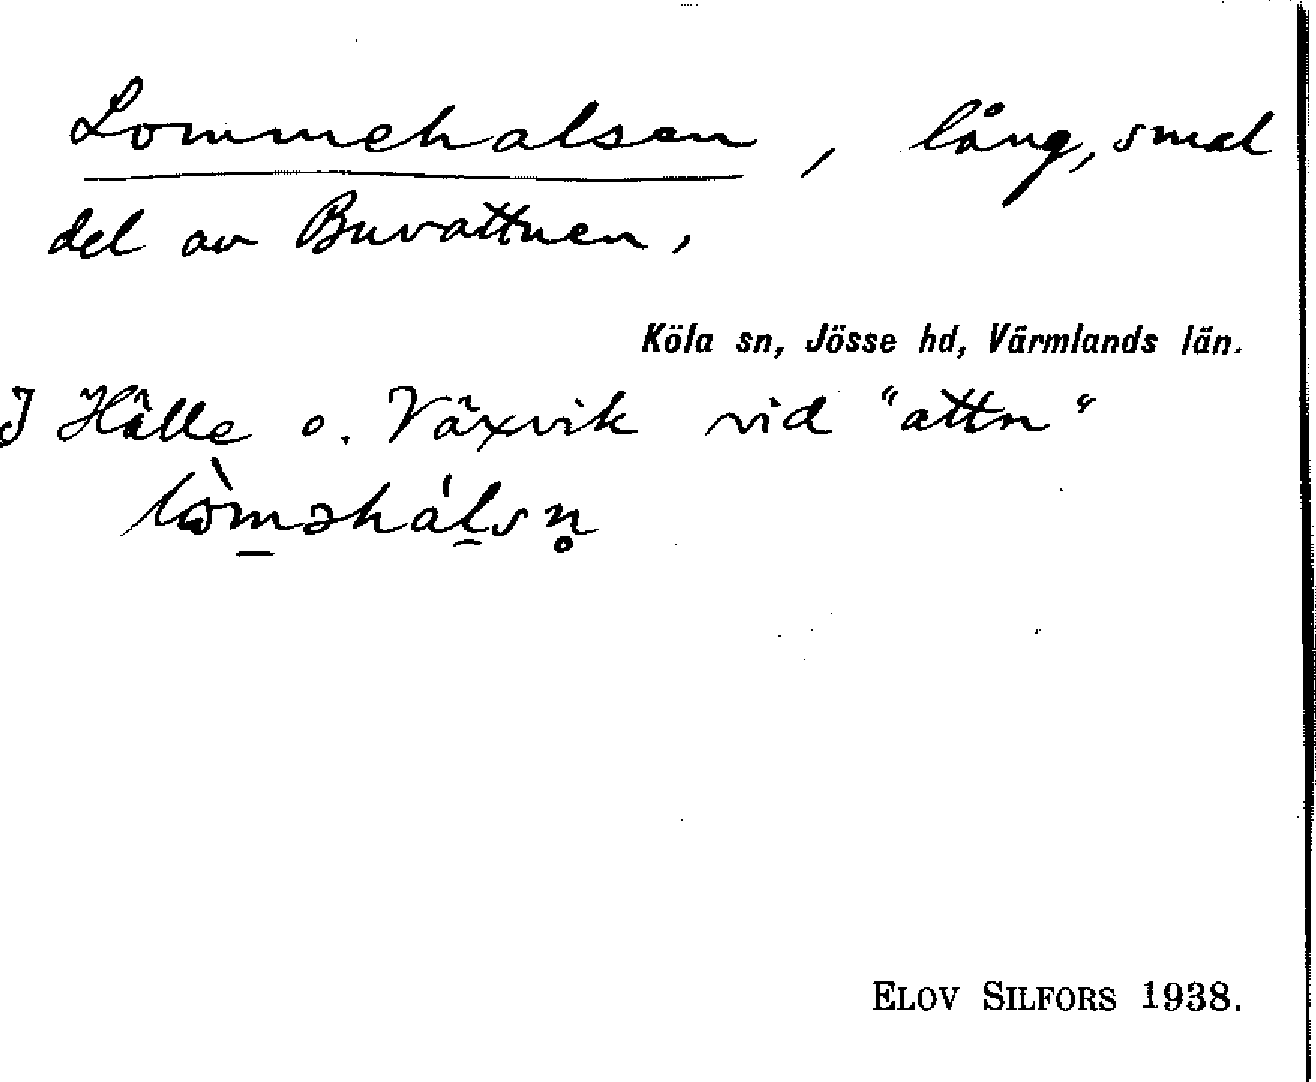 Lommehalsen, lång, smal
del av Buvattnen,
Köla sn, Jösse hd, Värmlands län.
I Hälle o. Växvik vid "attn"
ELOV SILFORS 1938.